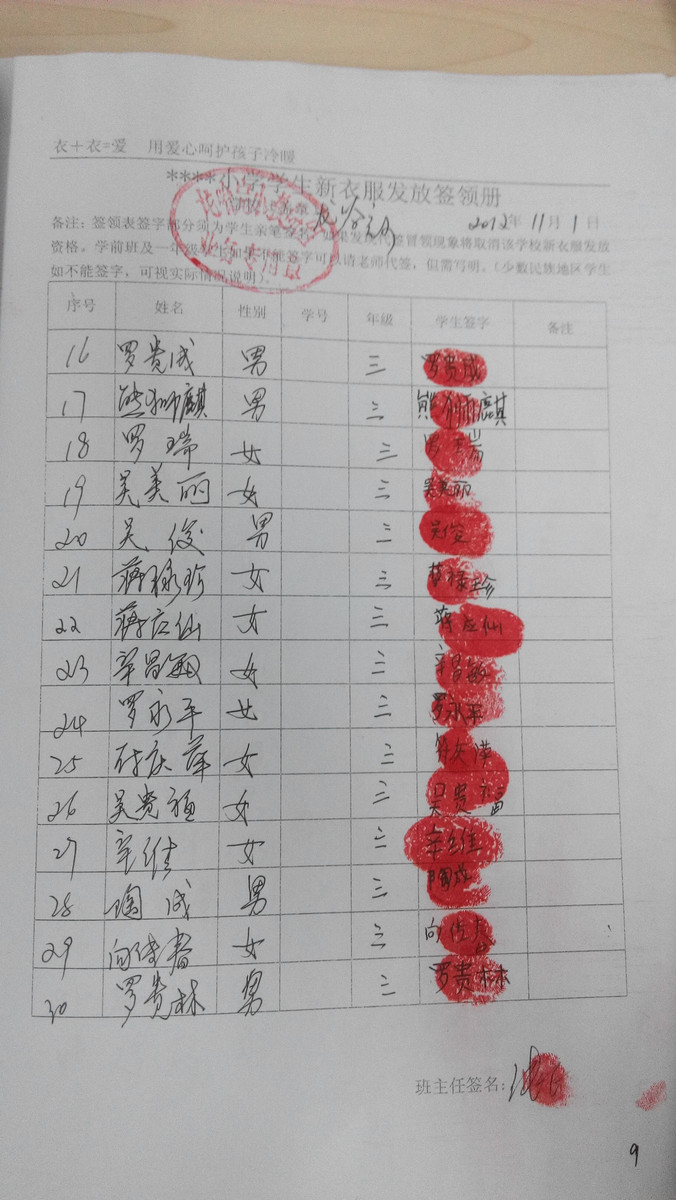 衣+衣=爱 用爱心呵护孩子冷暖
****小学学生新衣服发放签领册
2012年 11月 1日
备注:签领表签字部分须为学生亲笔签名,如果发现代签冒领现象将取消该学校新衣服发放
资格。学前班及一年级学生如果不能签字可以请老师代签,但需写明。(少数民族地区学生
如不能签字,可视实际情况说明)。
序号 姓名 性别 学号 年级 学生签字 备注
16 罗贵成 男 三 罗贵成
17 熊狮麒 男 三 熊狮麒
18 罗瑞 女 三 罗瑞
19 吴美丽 女 三 吴美丽
20 吴俊 男 三 吴俊
21 蒋禄珍 女 三 蒋禄珍
22 蒋应仙 女 三 蒋应仙
23 辛昌敏 女 三 辛昌敏
24 罗永平 女 三 罗永平
25 女 三
26 吴贵福 女 三 吴贵福
27 辛维 女 三 辛维
28 陶成 男 三 陶成
29 女 三
30 罗贵林 男 三 罗贵林
班主任签名:
9